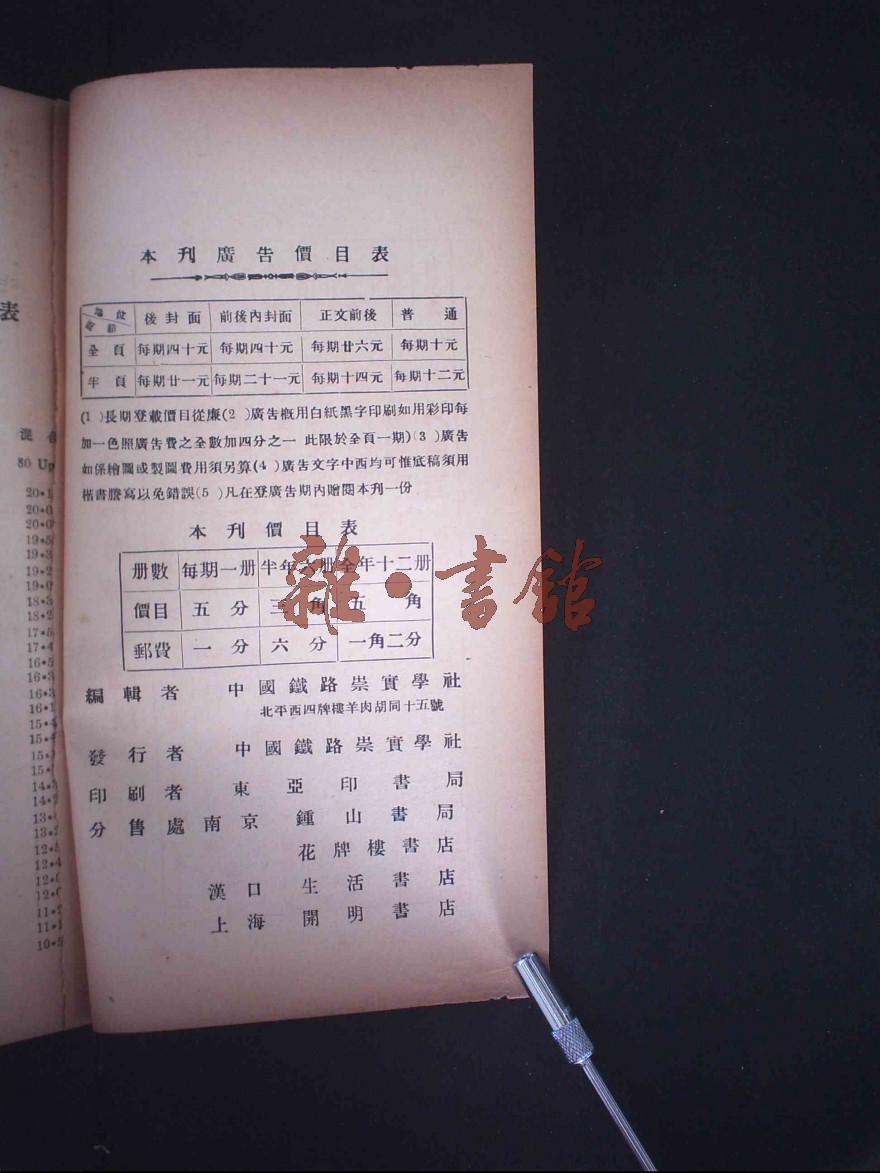 本刊廣告價目表
地位 後封面 前後內封面 正文前後 普通
全頁 每期四十元 每期四十元 每期廿六元 每期十元
半頁 每期廿一元 每期二十一元 每期十四元 每期十二元
(1)長期登載價目從廉(2)廣告概用白紙黑字印刷如用彩印每
加一色照廣告費之全數加四分之一 此限於全頁一期)(3)廣告
如係繪圖或製圖費用須另算(4)廣告文字中西均可惟底稿須用
楷書謄寫以免錯誤(5)凡在登廣告期內贈閱本刊一份
本刊價目表
册數 每期一册 半年六册 全年十二册
價目 五分 三角 五角
郵費 一分 六分 一角二分
編輯者 中國鐵路崇實學社
北平西四牌樓羊肉胡同十五號
發行者 中國鐵路崇實學社
印刷者 東亞印書局
分售處 南京 鍾山書局
花牌樓書店
漢口 生活書店
上海 開明書店
雜·書館
表
80 Up